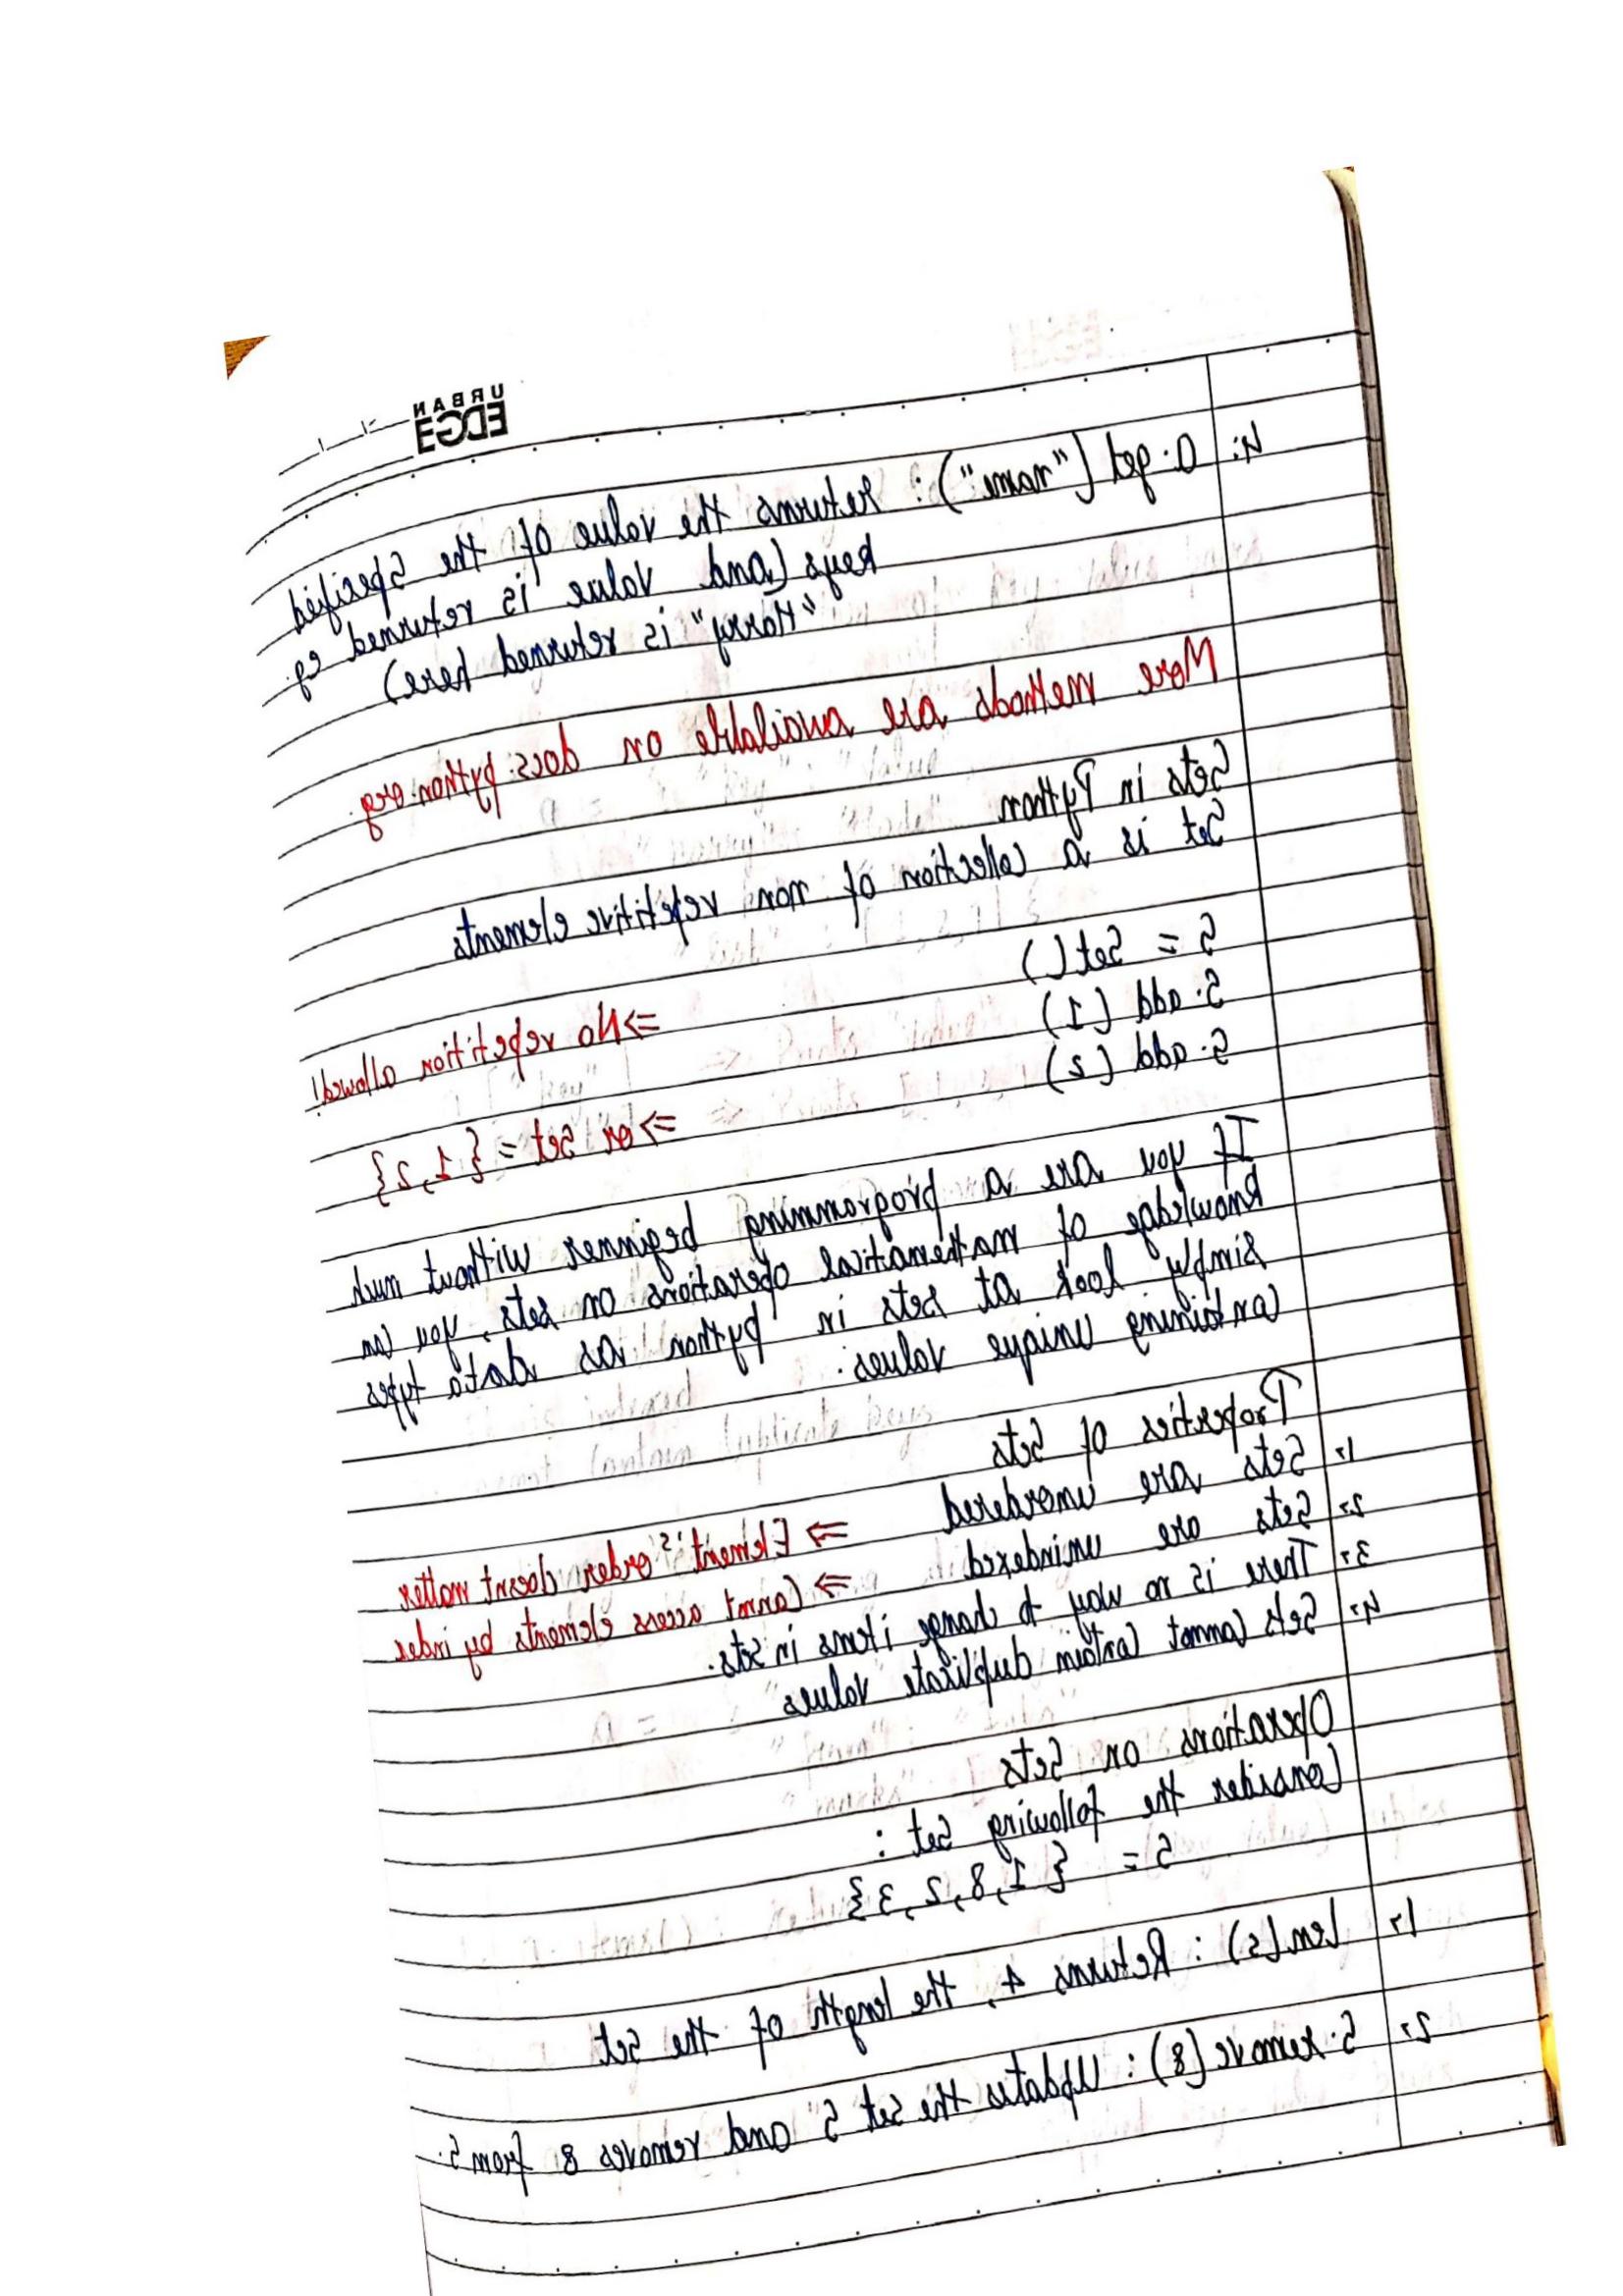 URBAN
EDGE
4. a.get("name") : Returns the value of the specified
keys (and value is returned eg.
"Harry" is returned here)
More methods are available on docs.python.org.
Sets in Python
Set is a collection of non repetitive elements
S = Set()
S.add (1) => No repetition allowed!
S.add (2) => or Set = {1,2}
If you are a programming beginner without much
knowledge of mathematical operations on sets, you can
simply look at sets in python as data types
containing unique values.
Properties of Sets
1. Sets are unordered => Element's order doesnt matter
2. Sets are unindexed => Cannot access elements by index
3. There is no way to change items in sets.
4. Sets cannot contain duplicate values
Operations on Sets
Consider the following Set :
S = {1,8,2,3}
1. Len(s) : Returns 4, the length of the set
2. S.remove(8) : Updates the set S and removes 8 from S.